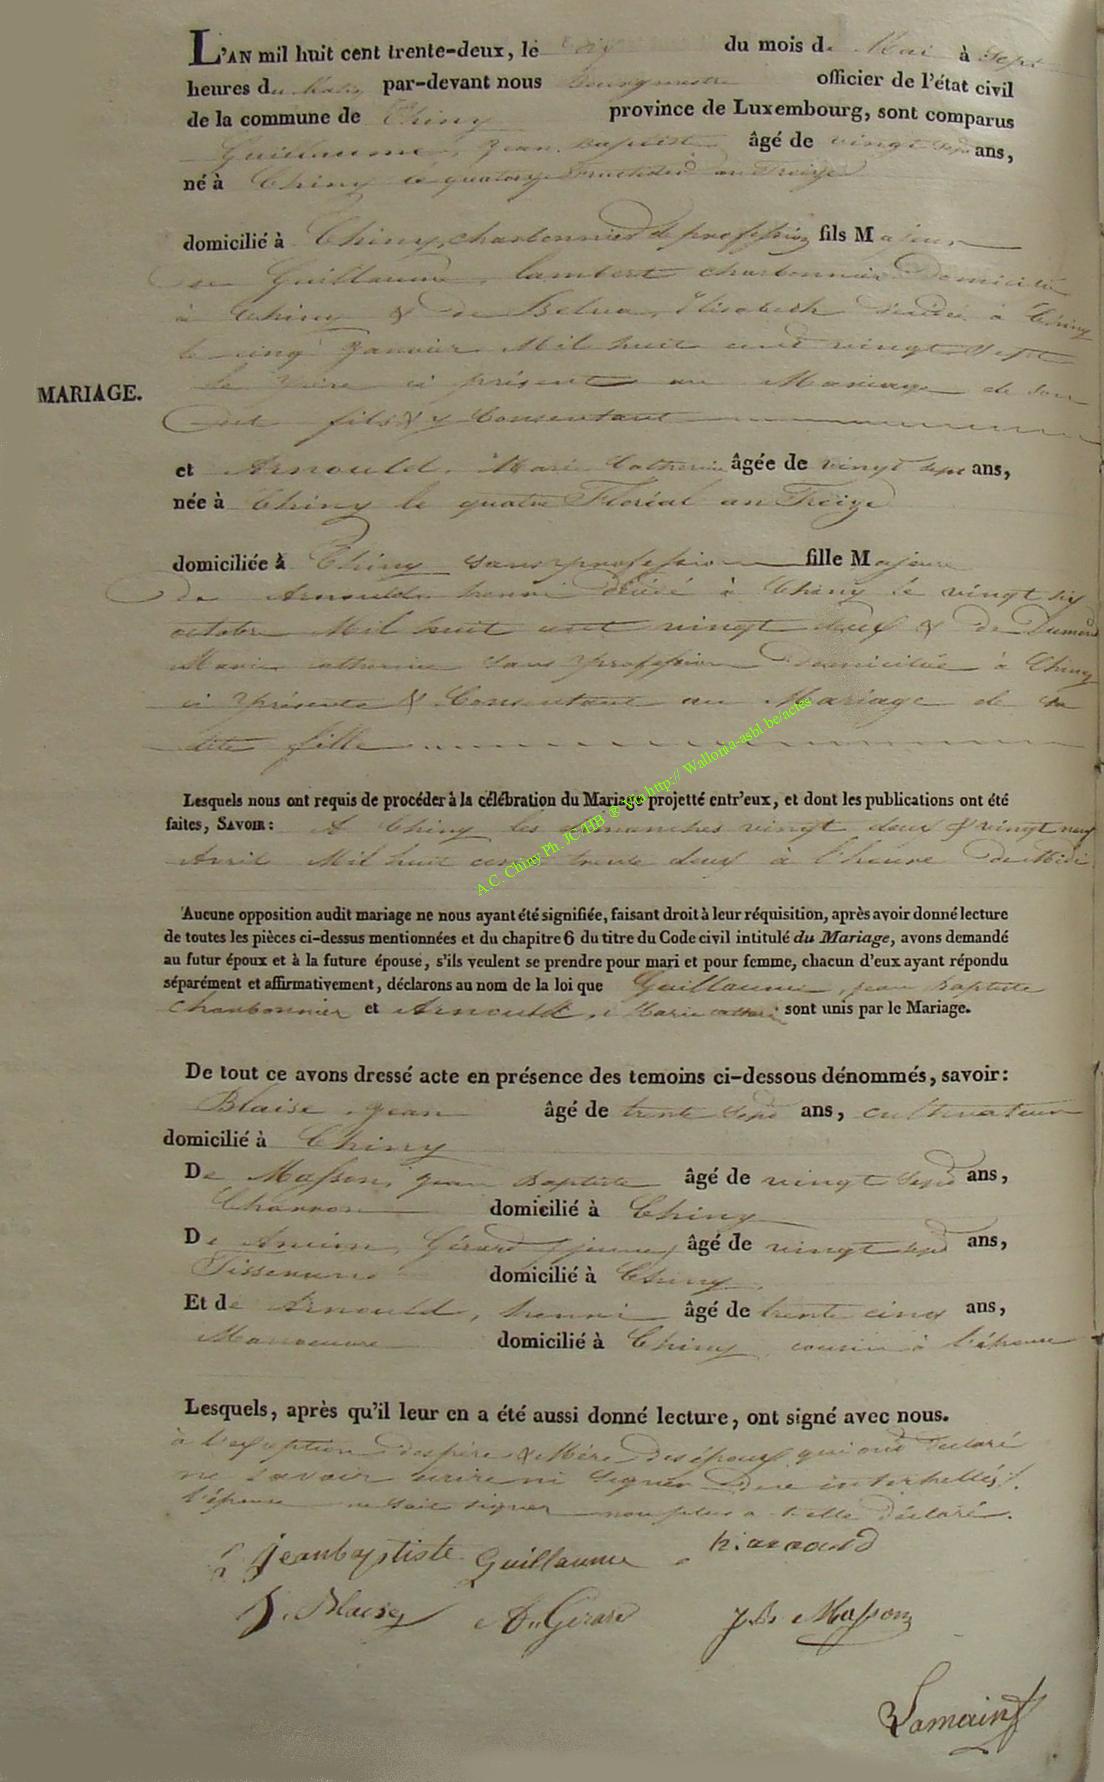 L'AN mil huit cent trente-deux, le dix du mois de Mai à Sept
heures du Matin par-devant nous Bourgmestre officier de l'état civil
de la commune de Chiny province de Luxembourg, sont comparus
Guillaume, Jean Baptiste âgé de vingt Sept ans,
né à Chiny le quatorze fructidor an Treize
domicilié à Chiny, charbonnier de profession fils Majeur
de Guillaume, lambert charbonnier Domicilié
à Chiny & de Belva, Elisabeth décédée à Chiny
le cinq Janvier Mil huit cent vingt Sept
MARIAGE.
le père ci présent au Mariage de Son
dit fils & y Consentant
et Arnould, Marie Catherine âgée de vingt sept ans,
née à Chiny le quatre Floréal an Treize
domiciliée à Chiny Sans profession fille Majeure
de Arnould henri décédé à Chiny le vingt six
octobre Mil huit cent vingt deux & de
Marie catherine Sans profession Domiciliée à Chiny
ci présente & Consentant au Mariage de Sa
dite fille
Lesquels nous ont requis de procéder à la célébration du Mariage projetté entr'eux, et dont les publications ont été
faites, SAVOIR: A Chiny les dimanches vingt deux & vingt neuf
Avril Mil huit cent trente deux à l'heure de Midi
A.C. Chiny Ph. JC/HB ® Via http:// Wallonia-asbl.be/actes
Aucune opposition audit mariage ne nous ayant été signifiée, faisant droit à leur réquisition, après avoir donné lecture
de toutes les pièces ci-dessus mentionnées et du chapitre 6 du titre du Code civil intitulé du Mariage, avons demandé
au futur époux et à la future épouse, s'ils veulent se prendre pour mari et pour femme, chacun d'eux ayant répondu
séparément et affirmativement, déclarons au nom de la loi que Guillaume, jean baptiste
charbonnier et Arnould, Marie catherine sont unis par le Mariage.
De tout ce avons dressé acte en présence des temoins ci-dessous dénommés, savoir:
Blaise, jean âgé de trente Sept ans, cultivateur
domicilié à Chiny
De Masson, jean Baptiste âgé de vingt Sept ans,
Charron domicilié à Chiny
De Gérard (jeune) âgé de vingt sept ans,
Tisserand domicilié à Chiny
Et de Arnould, henri âgé de trente cinq ans,
Manoeuvre domicilié à Chiny, cousin à l'épouse
Lesquels, après qu'il leur en a été aussi donné lecture, ont signé avec nous.
à l'exception des père & Mère des époux qui ont déclaré
ne savoir écrire ni Signer de ce interpellés.
l'épouse ne sait signer non plus a t-elle déclaré.
jeanbaptiste Guillaume h. arnould
J. Blaise A. Gerard J.B. Masson